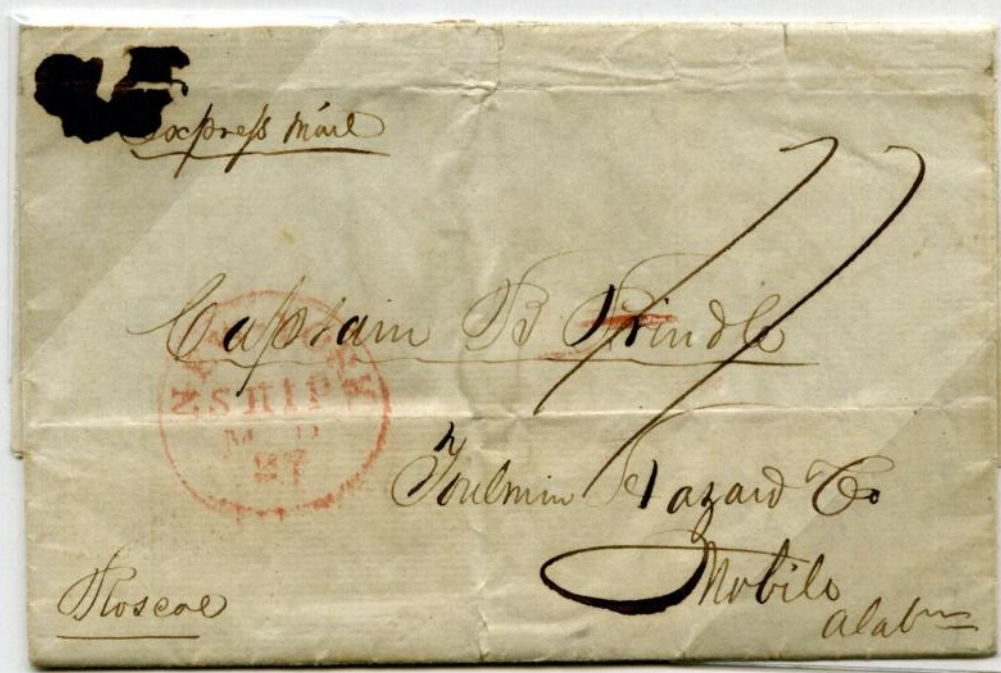 Express Mail
77
Captain B Prindle
NEW-YORK
SHIP
27
Toulmin Hazard & Co
Mobile
Alabm
Roscoe